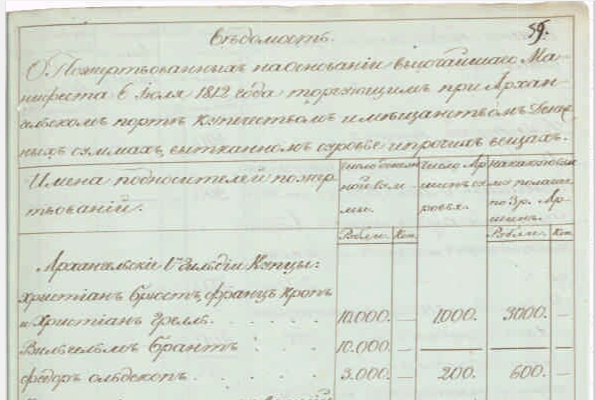 59.
Вѣдомость.
О Пожертвованныхъ на основаніи высочайшаго Ма-
нифеста 6 Іюля 1812 года торгующимъ при Архан-
гельскомъ портѣ купечествомъ и мѣщанствомъ Денеж-
ныхъ суммахъ, вытканномъ суровье и прочихъ вещахъ.
Имена подносителей пожер-
твованій.
Число денеж-
ной сум-
мы.
Число Ар-
шинъ су-
ровья.
На каковую
сумму полагая
по 3 р. Ар-
шинъ.
Рубли. Коп. Рубли. Коп.
Архангельскіе 1й Гильдіи Купцы:
Христіанъ Брюстъ, францъ Кропъ
и Христіанъ Грелль. . . . . 10.000. — 1000. 3000. —
Вильгельмъ Брантъ . . . 10.000. — — — —
федоръ ольдекопъ . . . . . 3.000. — 200. 600. —